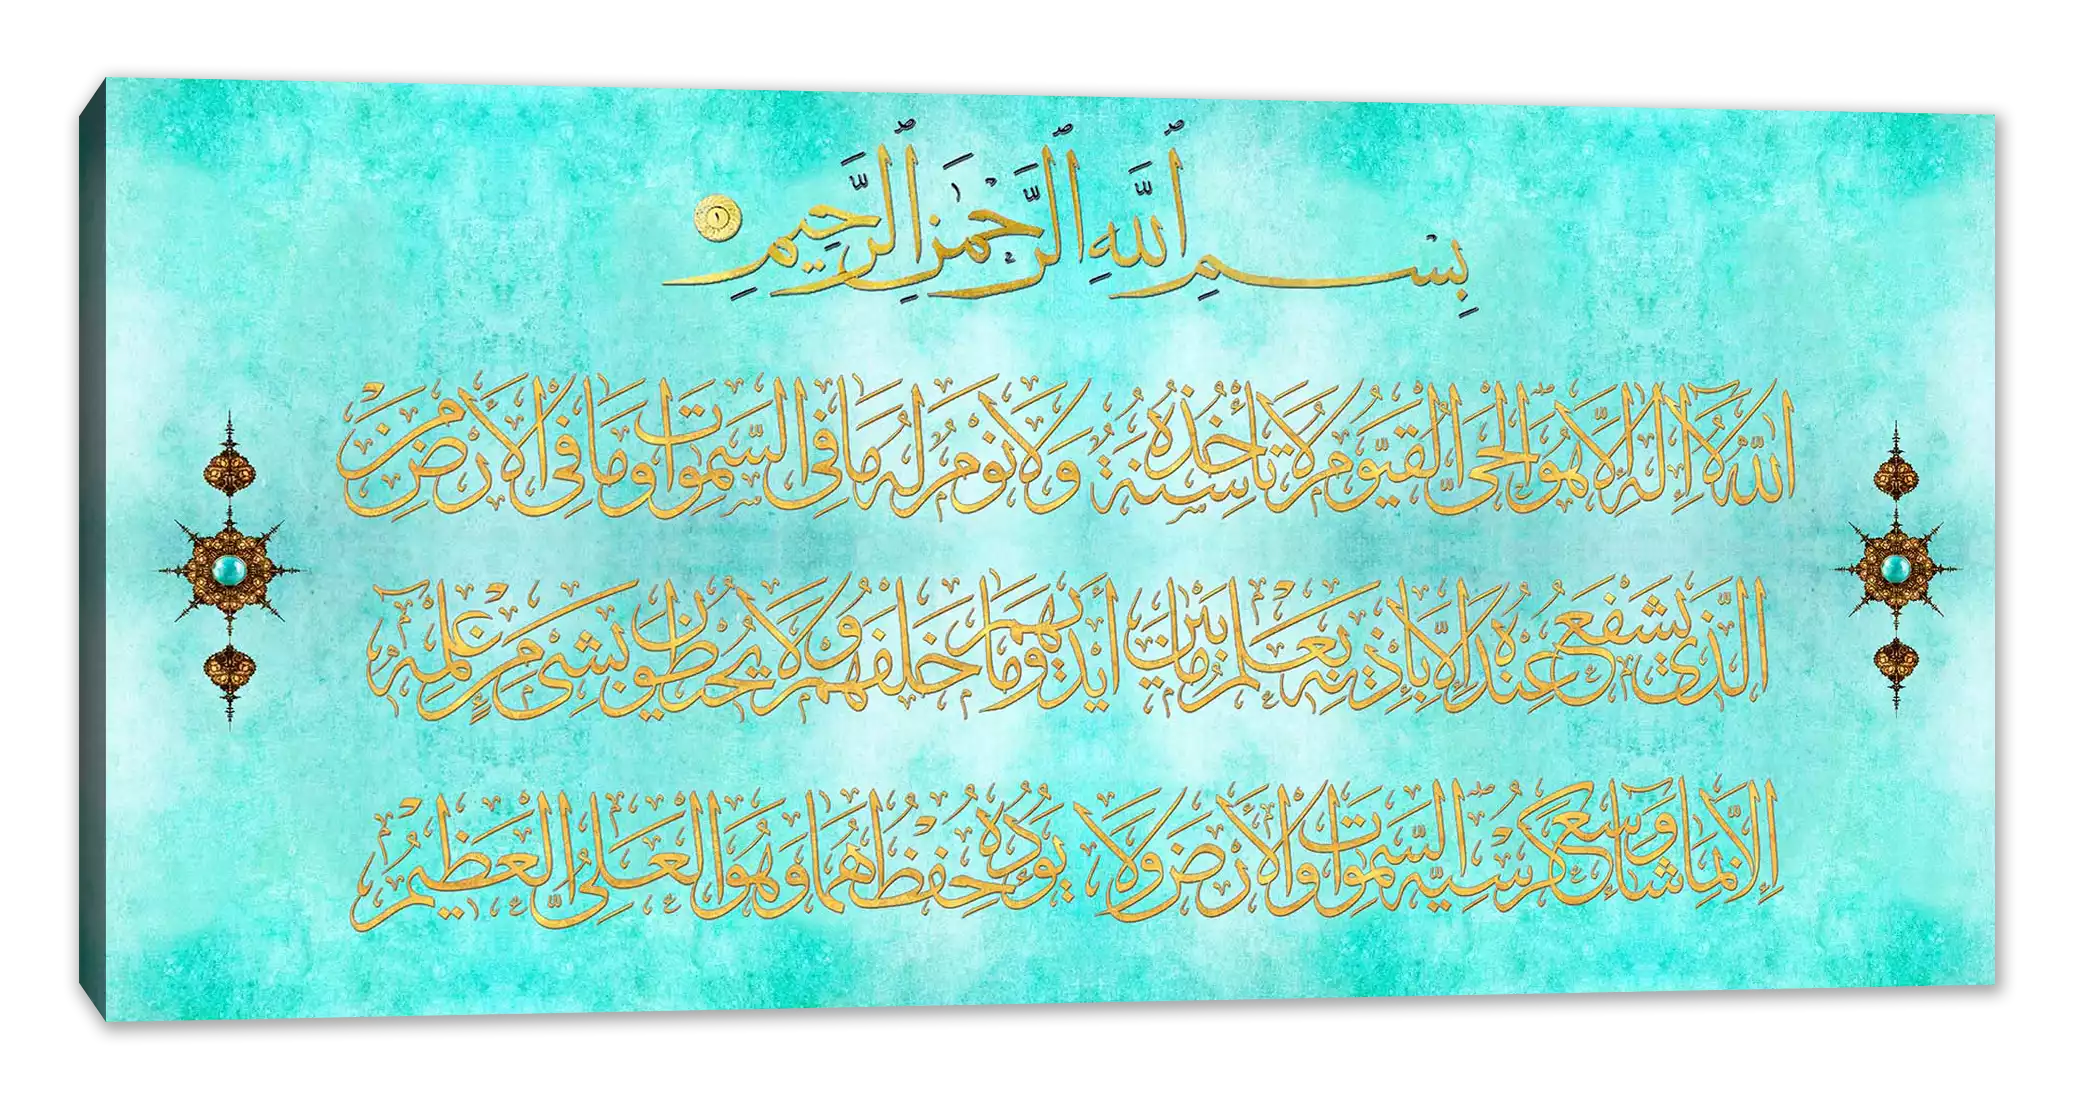 بِسْمِ ٱللَّهِ ٱلرَّحْمَٰنِ ٱلرَّحِيمِ ١
اللَّهُ لَا إِلَٰهَ إِلَّا هُوَ الْحَيُّ الْقَيُّومُ لَا تَأْخُذُهُ سِنَةٌ وَلَا نَوْمٌ لَهُ مَا فِي السَّمَٰوَاتِ وَمَا فِي الْأَرْضِ مَنْ
الَّذِي يَشْفَعُ عِنْدَهُ إِلَّا بِإِذْنِهِ يَعْلَمُ مَا بَيْنَ أَيْدِيهِمْ وَمَا خَلْفَهُمْ وَلَا يُحِيطُونَ بِشَيْءٍ مِنْ عِلْمِهِ
إِلَّا بِمَا شَاءَ وَسِعَ كُرْسِيُّهُ السَّمَٰوَاتِ وَالْأَرْضَ وَلَا يَئُودُهُ حِفْظُهُمَا وَهُوَ الْعَلِيُّ الْعَظِيمُ